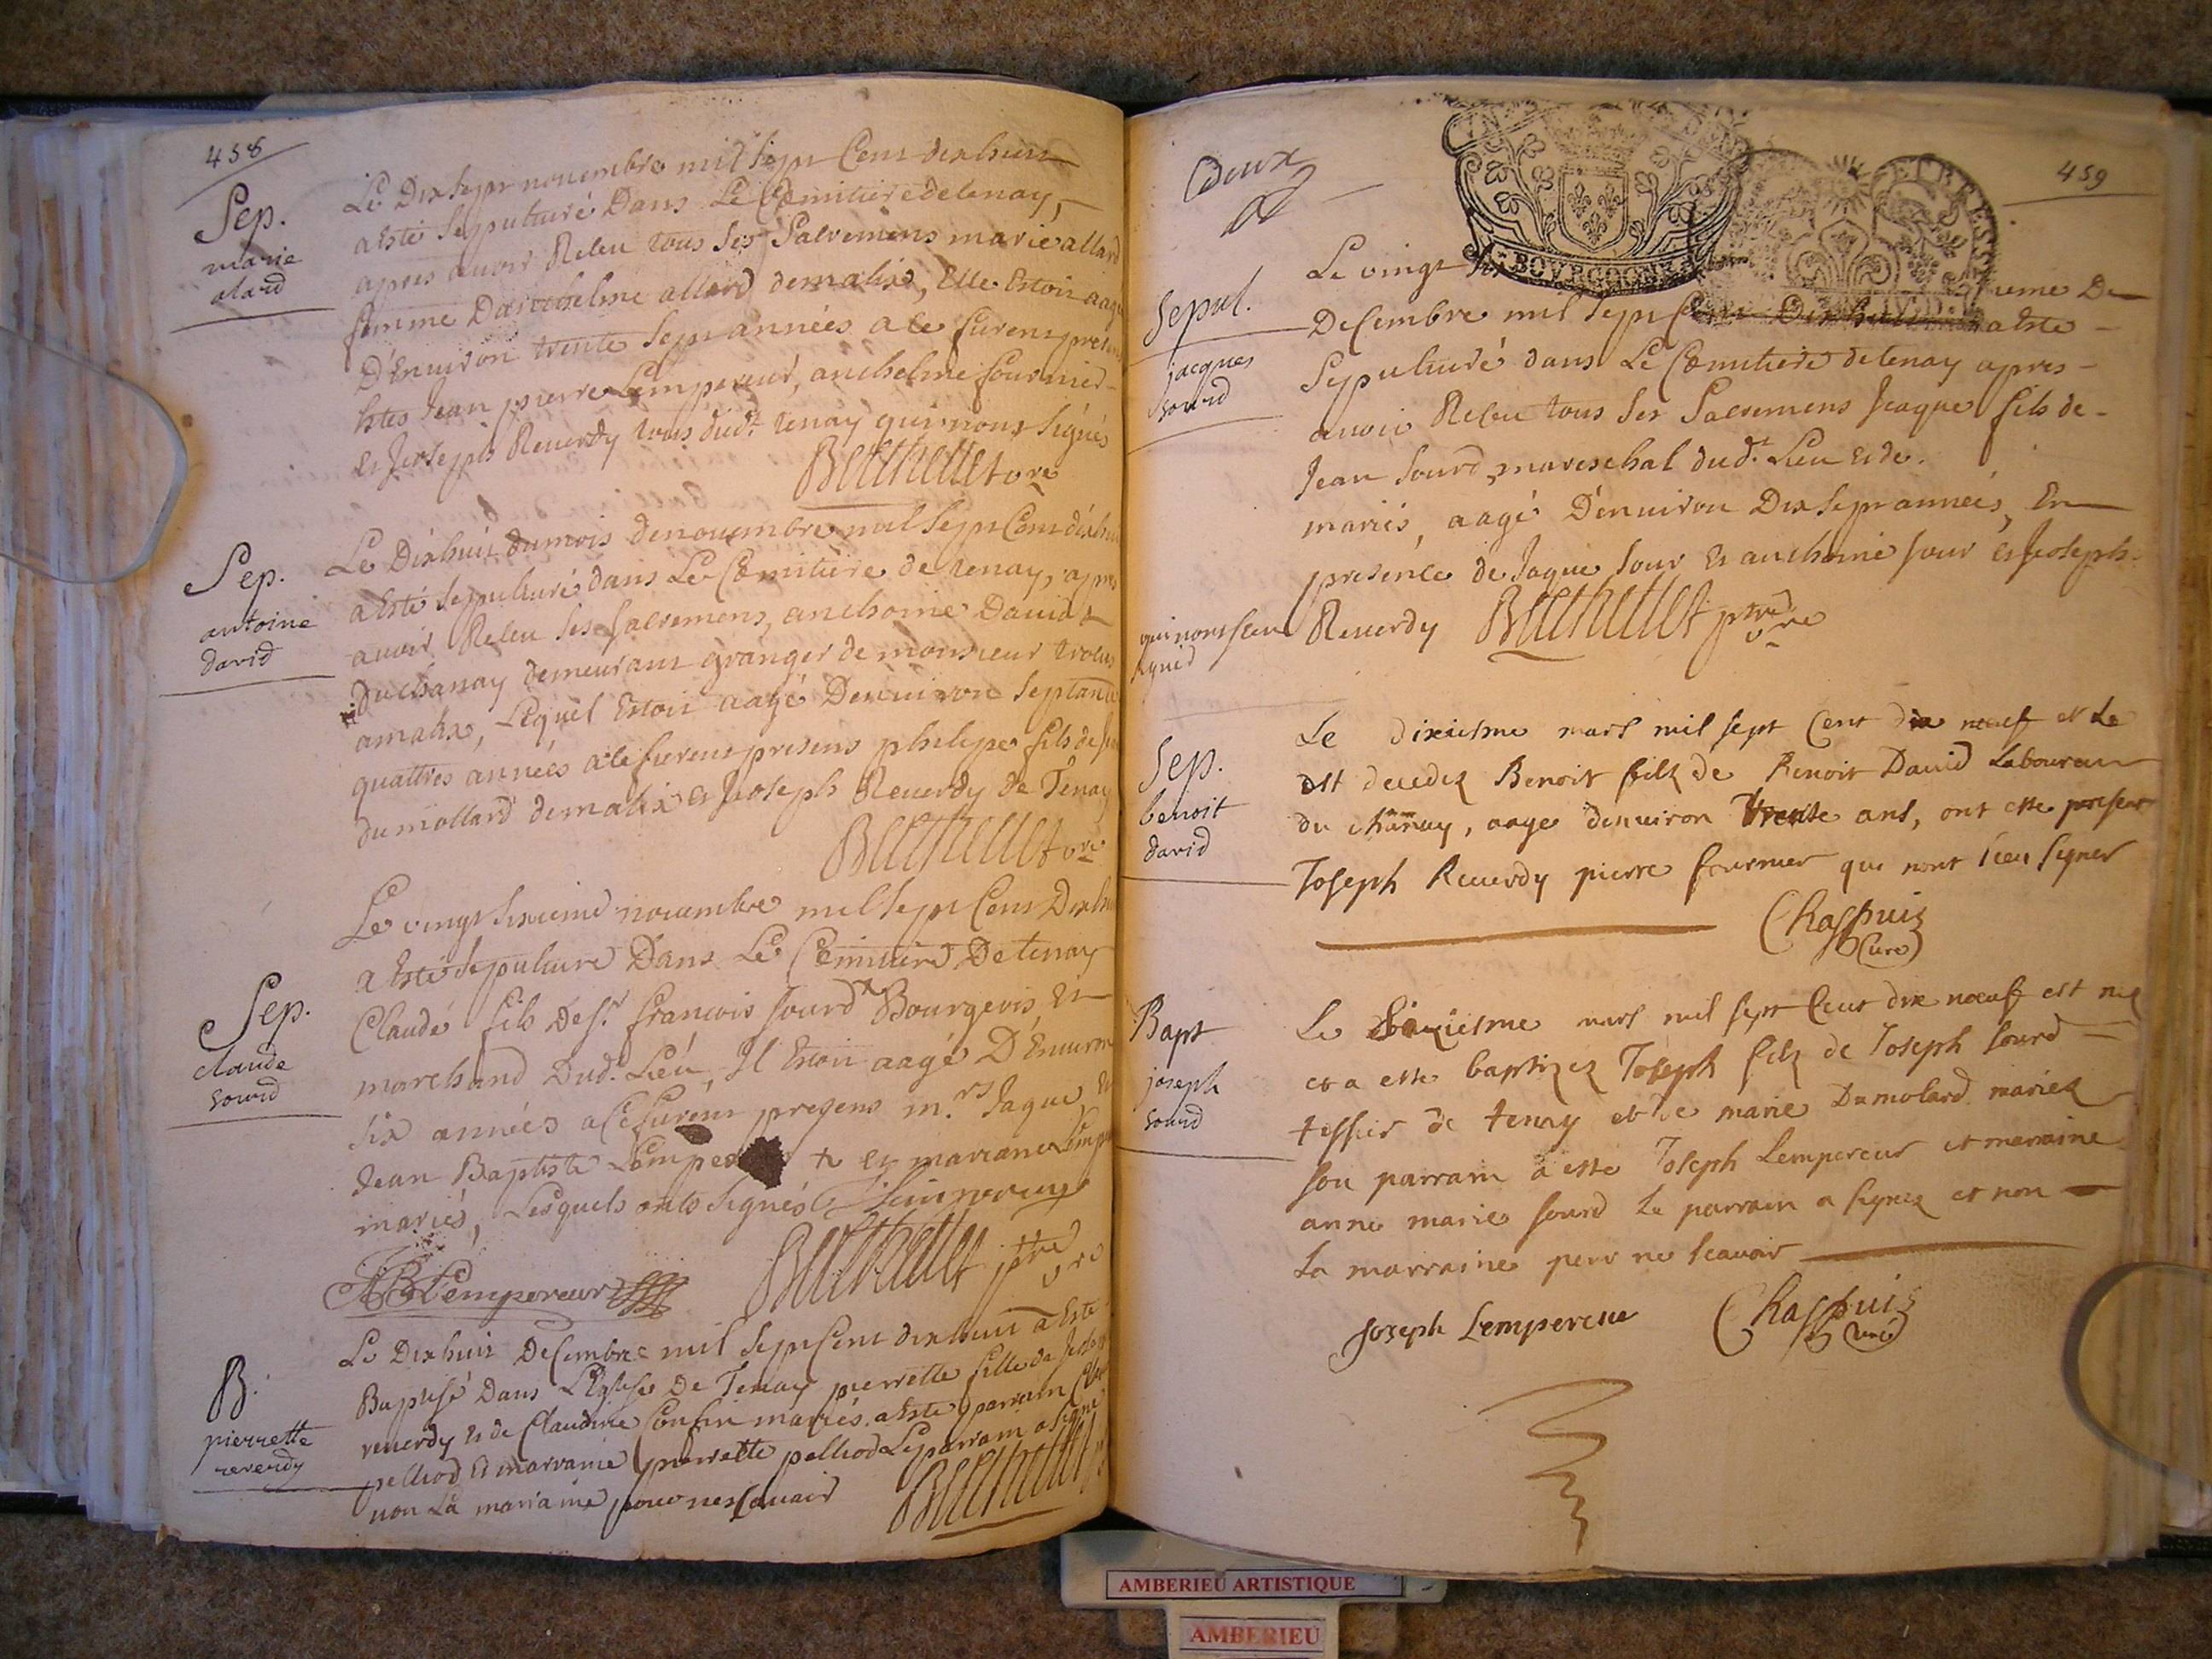 458
Sep.
marie
alard
Le Dix sept nouembre mil sept Cent dix huit
a Esté sepulturé Dans Le Cœmitiere de tenay,
apres auoir Receu tous ses Sacremens marie allard
femme Danthelme allard demalix, Elle Estoit aagé
D'Enuiron trente sept années a ce furent présens
Jean pierre Lempereur, anthelme fournier
et Joseph Reuerdy tous dud.t tenay qui nont signés
Berthellet vre
Sep.
antoine
david
Le Dixhuit du mois denouembre mil sept Cent dixhuit
a Esté sepulturé dans Le Cœmitiere de tenay, apres
auoir Receu ses sacremens, anthoine Dauid
Du chanay demeurant granger de monsieur
amalix, Lequel Estoit aagé Denuiron septante
quattres années a ce furent presens philippe fils de
dumollard demalix et Joseph Reuerdy de Tenay
Berthellet vre
Sep.
claude
sourd
Le vingt sixieme nouembre mil sept Cent Dixhuit
a Esté sepulturé Dans Le Cœmitiere De tenay
Claude fils de Sr. francois sourd Bourgeois, Et
marchand Dud. Lieu, Il Estoit aagé D'Enuiron
six années a Ce furent presens m.rs Jaque, Et
Jean Baptiste Lempe et mariane
mariés, Lesquels onts signés Lempereur
JB Lempereur Berthellet ptre vre
B.
pierrette
reverdy
Le Dixhuit Decembre mil sept Cent dixhuit a Esté
Baptisé Dans L'Eglise De Tenay pierrette fille de
reuerdy et de Claudine Confin mariés. a Esté parrain
pelliod Et marraine pierrette pelliod Le parrain a signé
non La marraine pour ne scauoir
Berthellet
459
Deux
BOVRGOGNE
Sepul.
jacques
sourd
Le vingt ieme De
Decembre mil sept Cent Dix huit a Esté
Sepulturé dans Le Cœmitiere de tenay apres
auoir Receu tous ses Sacremens Jeaque fils de
Jean sourd mareschal dud.t Lieu et de.
mariés, aagé D'enuiron Dix sept années, En
presence de Jaque sour et anthoine sour et Joseph
Reuerdy Berthellet ptre vre
qui nont sceu
signer
Sep.
benoit
david
Le dixiesme mars mil sept Cent dix neuf et Le
est decedez Benoit filz de Benoit Dauid Laboureur
du channay, aage denuiron trente ans, ont este present
Joseph Reuerdy pierre fournier qui nont sceu signer
Chappuis
Cure
Bapt
joseph
sourd
Le mars mil sept Cent dix neuf est nez
et a este baptizez Joseph filz de Joseph sourd
tessier de tenay et de marie Dumolard mariez
son parrain a este Joseph Lempereur et marraine
anne marie sourd Le parrain a signez et non
La marraine pour ne scauoir
Joseph Lempereur Chappuis
Curé
AMBERIEU ARTISTIQUE
AMBERIEU